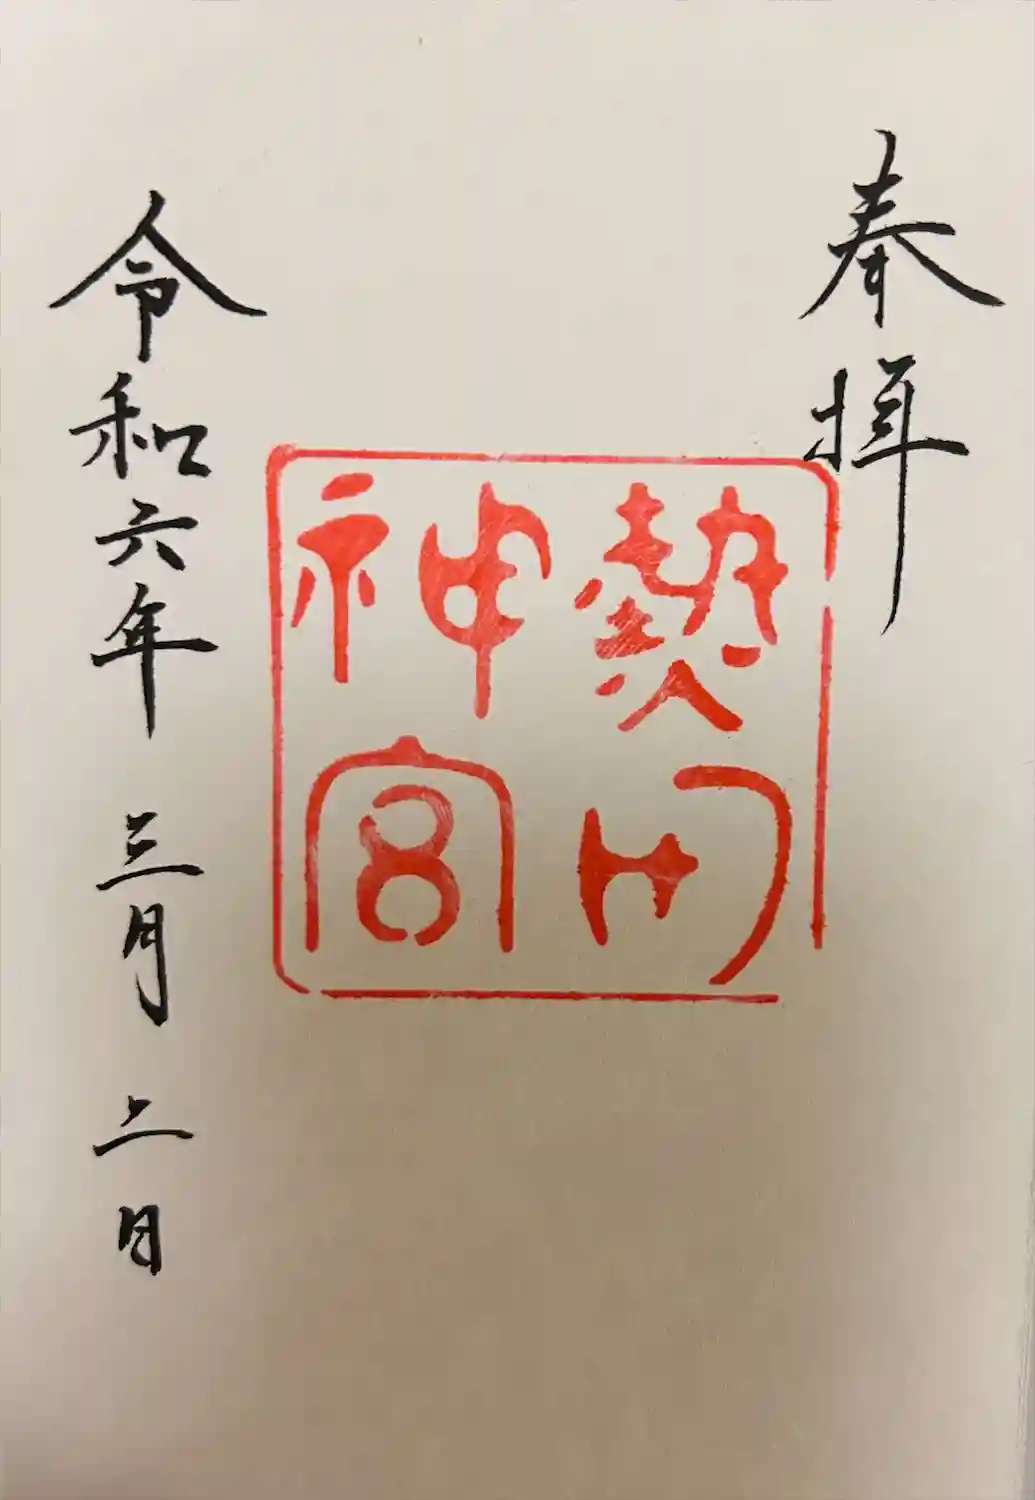 奉拝
熱田
神宮
令和六年 三月 二日